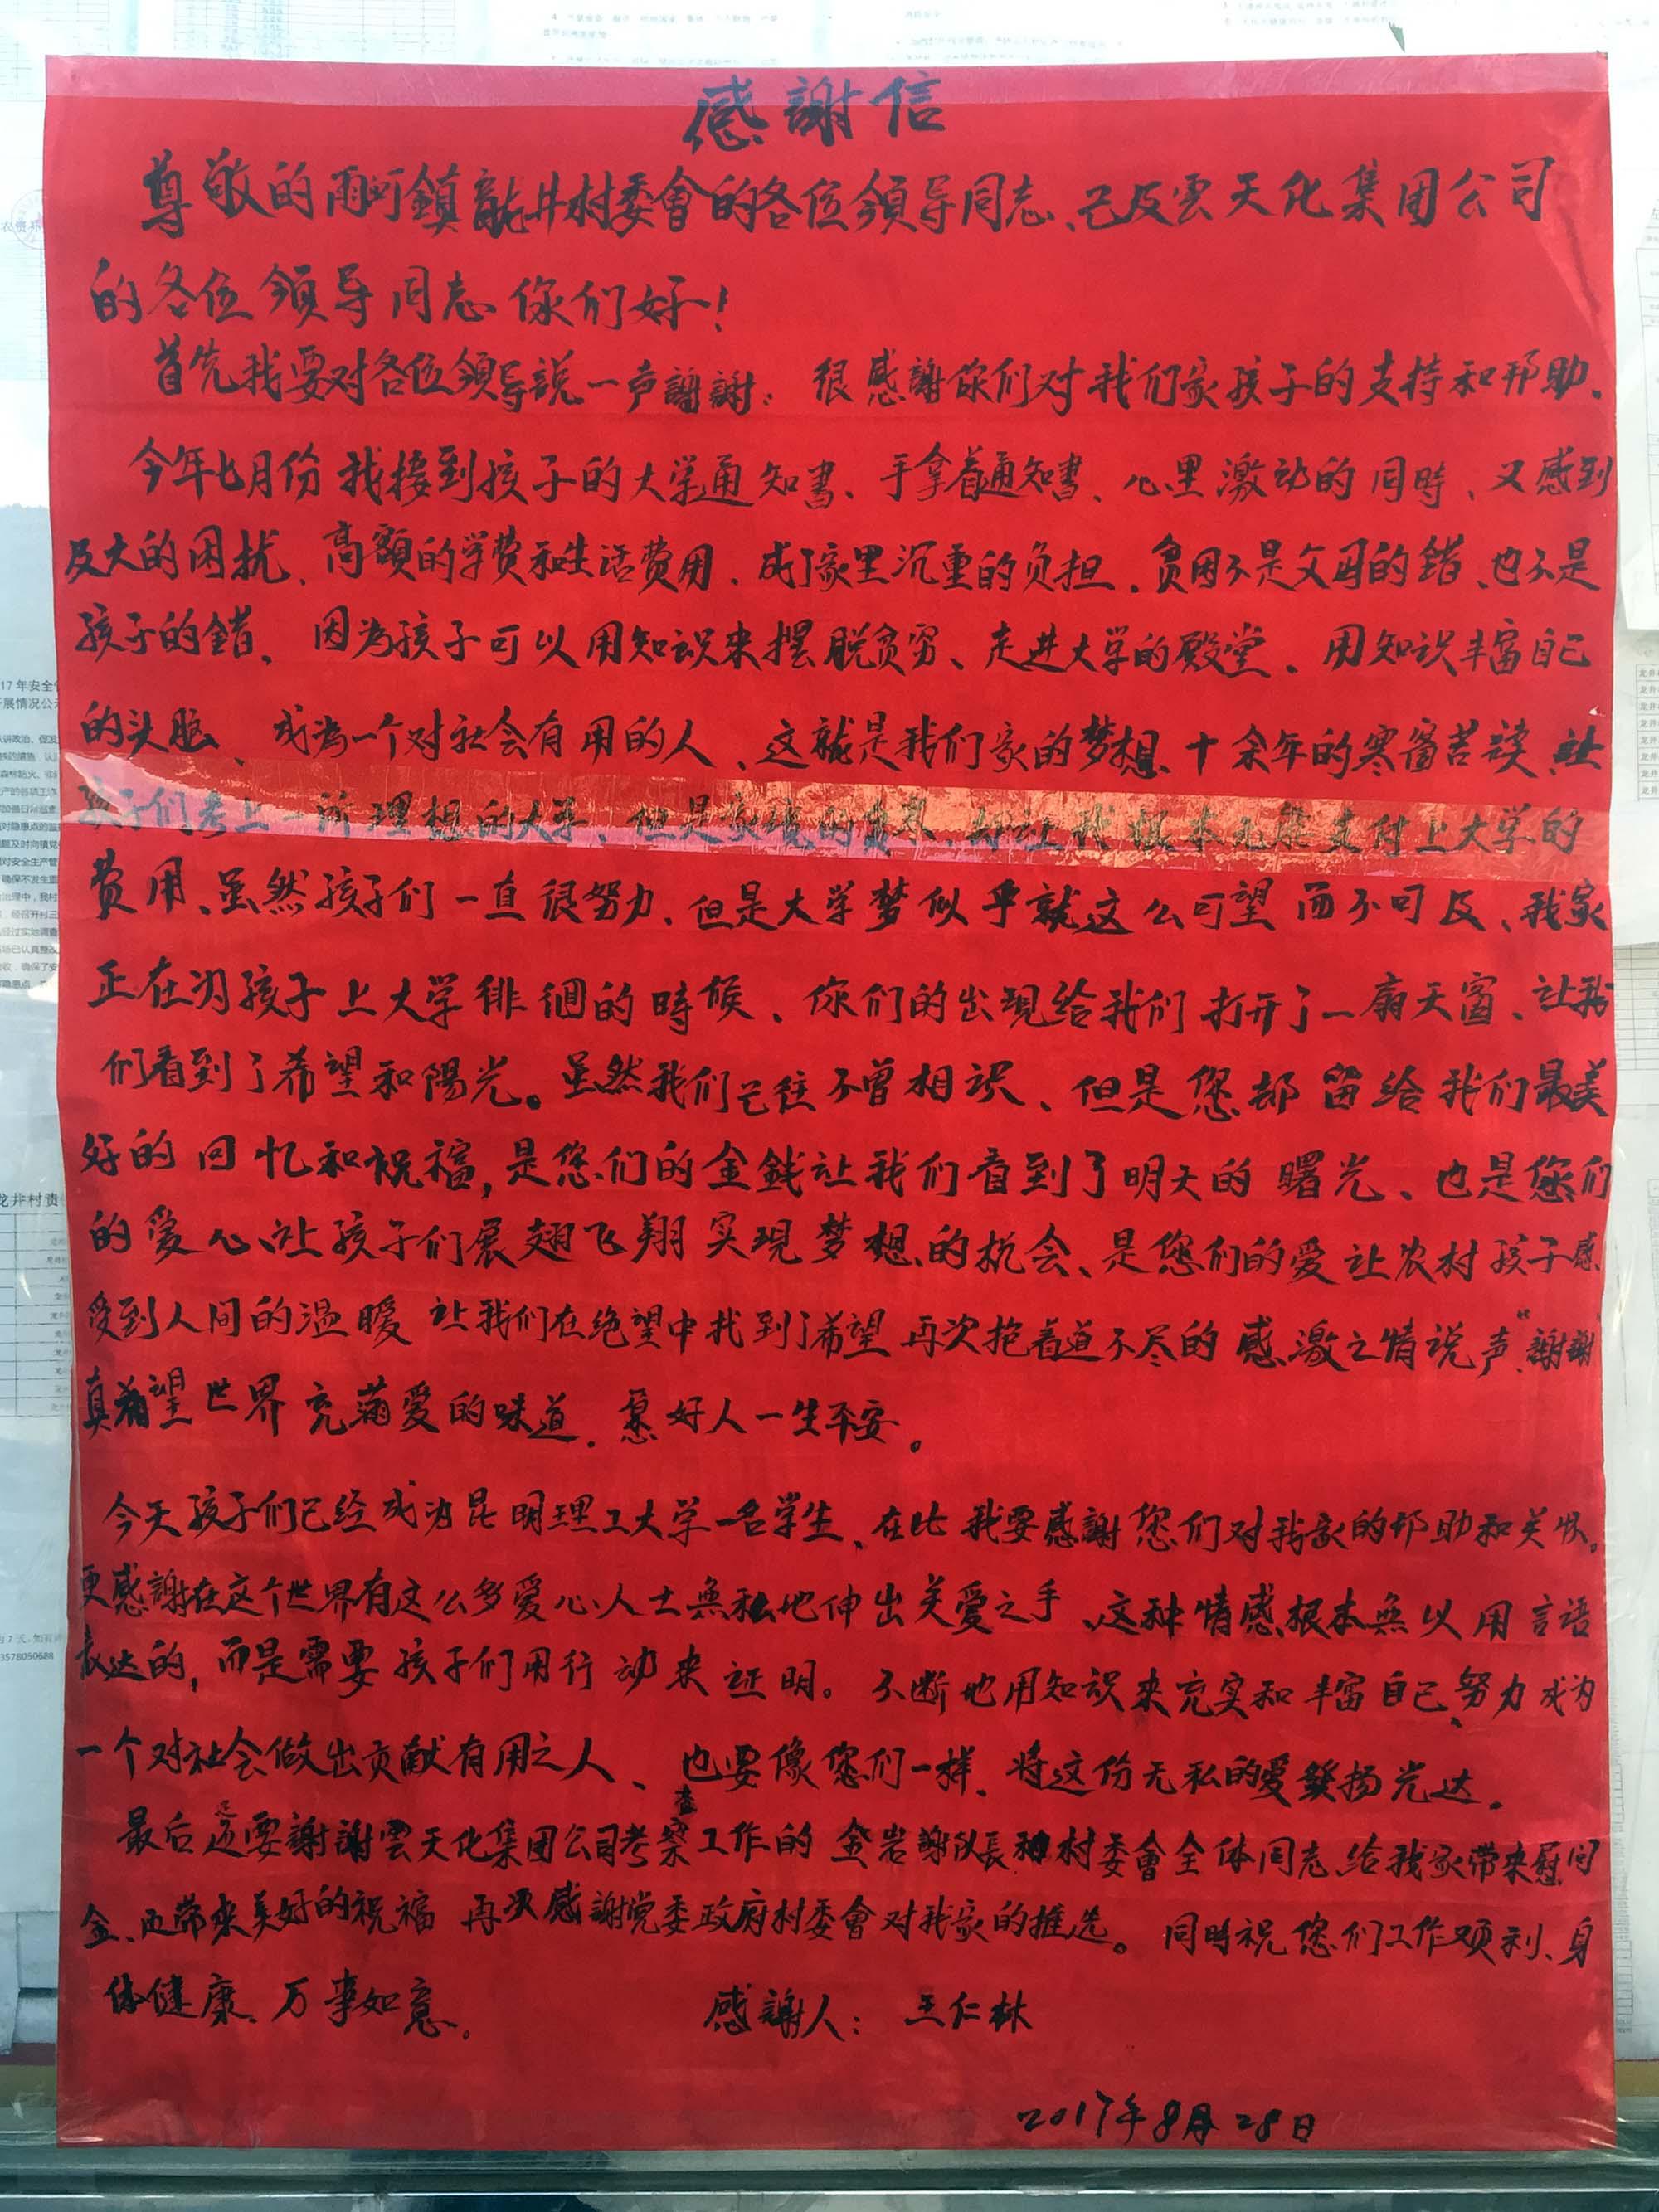 感謝信
尊敬的雨河鎮龍井村委會的各位領导同志、已及雲天化集团公司
的各位領导同志你们好！
首先我要对各位領导説一声謝謝：很感謝你们对我们家孩子的支持和邦助.
今年七月份我接到孩子的大学通知書、手拿着通知書、心里激动的同時、又感到
及大的困扰、高額的学费和生活费用、成了家里沉重的负担、贫困不是父母的錯、也不是
孩子的錯、因为孩子可以用知识来摆脱贫穷、走进大学的殿堂、用知识丰富自己
的头脑、成为一个对社会有用的人、这就是我们家的梦想、十余年的寒窗苦读、让
孩子们考上一所理想的大学、但是家境的贫寒、却让我根本无能支付上大学的
费用、虽然孩子们一直很努力、但是大学梦似乎就这么可望而不可及、我家
正在为孩子上大学徘徊的時候、你们的出現给我们打开了一扇天窗、让我
们看到了希望和陽光。虽然我们已往不曾相识、但是您却留给我们最美
好的回忆和祝福，是您们的金銭让我们看到了明天的曙光、也是您们
的爱心、让孩子们展翅飞翔实現梦想的机会、是您们的爱让农村孩子感
受到人间的温暖 让我们在绝望中找到了希望 再次抱着道不尽的感激之情说声“謝謝”
真希望世界充满爱的味道、愿好人一生平安。
今天孩子们已经成为昆明理工大学一名学生、在此我要感謝您们对我家的邦助和关怀。
更感謝在这个世界有这么多爱心人士無私地伸出关爱之手、这种情感根本無以用言语
表达的，而是需要孩子们用行动来证明。不断地用知识来充实和丰富自己、努力成为
一个对社会做出贡献有用之人、也要像您们一样、将这份无私的爱發扬光达。
最后还要謝謝雲天化集团公司考察工作的金岩謝队長和村委會全体同志给我家带来慰问
金、也带来美好的祝福 再次感謝党委政府村委會对我家的推选。同時祝您们工作顺利、身
体健康、万事如意。 感謝人：王仁林
2017年8月28日
17年安全
龙井村责
3578050688